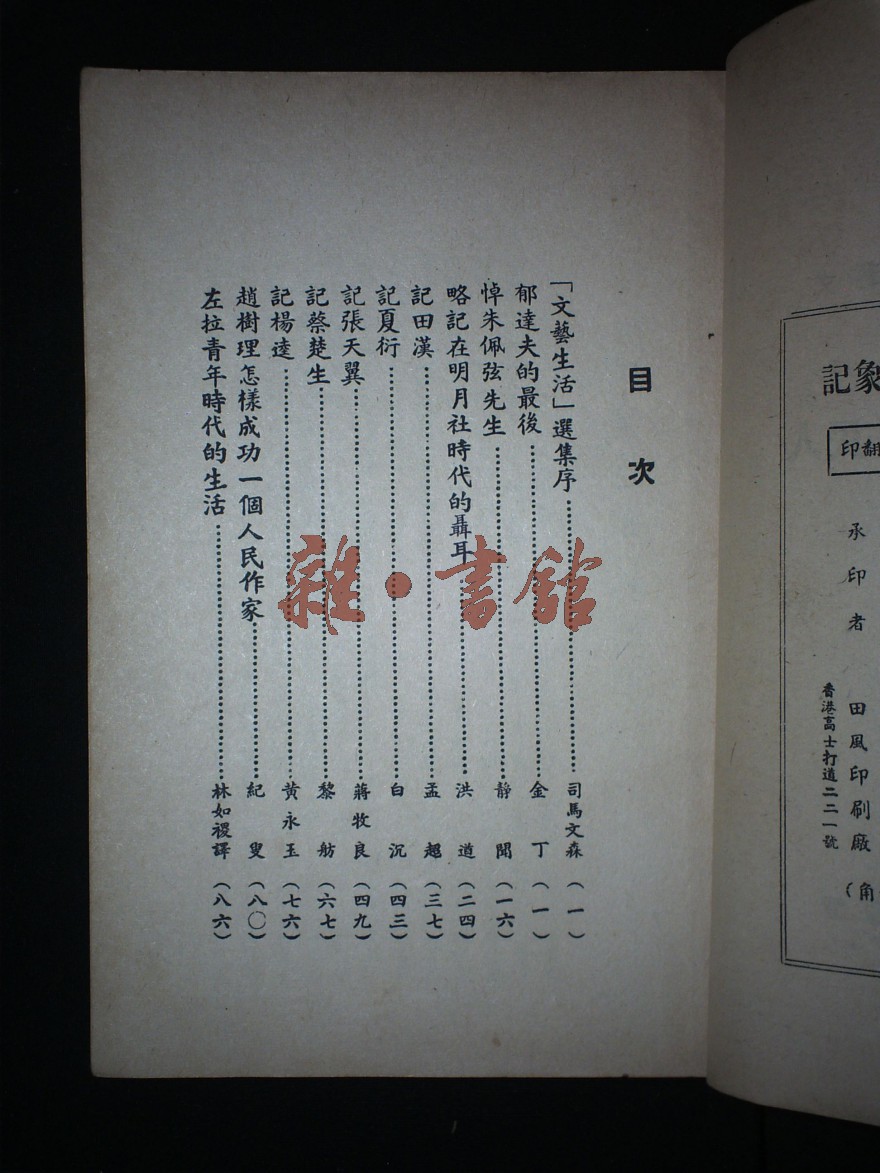 象記
翻印
承印者 田風印刷廠
香港高士打道二二一號
(角
目次
「文藝生活」選集序……司馬文森(一)
郁達夫的最後……金丁(一)
悼朱佩弦先生……靜聞(一六)
略記在明月社時代的聶耳……洪遒(二四)
記田漢……孟超(三七)
記夏衍……白沉(四三)
記張天翼……蔣牧良(四九)
記蔡楚生……黎舫(六七)
記楊逵……黄永玉(七六)
趙樹理怎樣成功一個人民作家……紀叟(八〇)
左拉青年時代的生活……林如稷譯(八六)
雜·書館